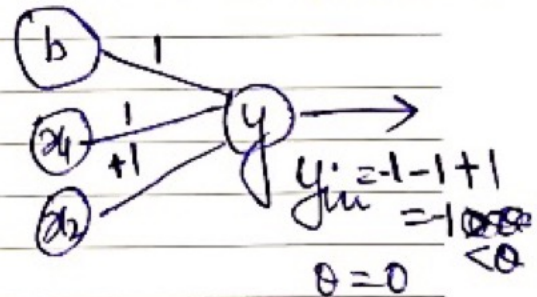 b
1
x1
1
+1
y
x2
yin = -1 -1 +1
= -1
< θ
θ = 0